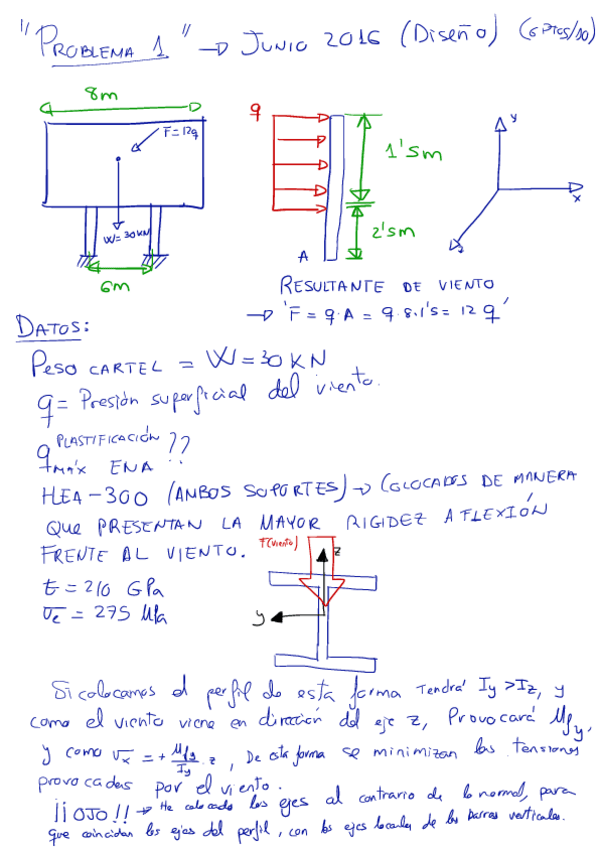 "PROBLEMA 1" → JUNIO 2016 (DISEÑO) (6 PTOS/10)
8m
F=12q
W=30KN
6m
q
1'5m
2'5m
A
y
x
z
RESULTANTE DE VIENTO
→ 'F = q·A = q·8·1'5 = 12 q'
DATOS:
PESO CARTEL = W = 30 KN
q = Presión superficial del viento.
q MÁX PLASTIFICACIÓN EN A ??
HEA-300 (AMBOS SOPORTES) → COLOCADOS DE MANERA
QUE PRESENTAN LA MAYOR RIGIDEZ A FLEXIÓN
FRENTE AL VIENTO.
F(viento)
z
y
E = 210 GPa
σe = 275 MPa
Si colocamos el perfil de esta forma Tendrá Iy > Iz, y
como el viento viene en dirección del eje z, Provocará Mfy,
y como σx = + Mfy/Iy · z, De esta forma se minimizan las tensiones
provocadas por el viento.
¡¡OJO!! → He colocado los ejes al contrario de lo normal, para
que coincidan los ejes del perfil, con los ejes locales de las barras verticales.